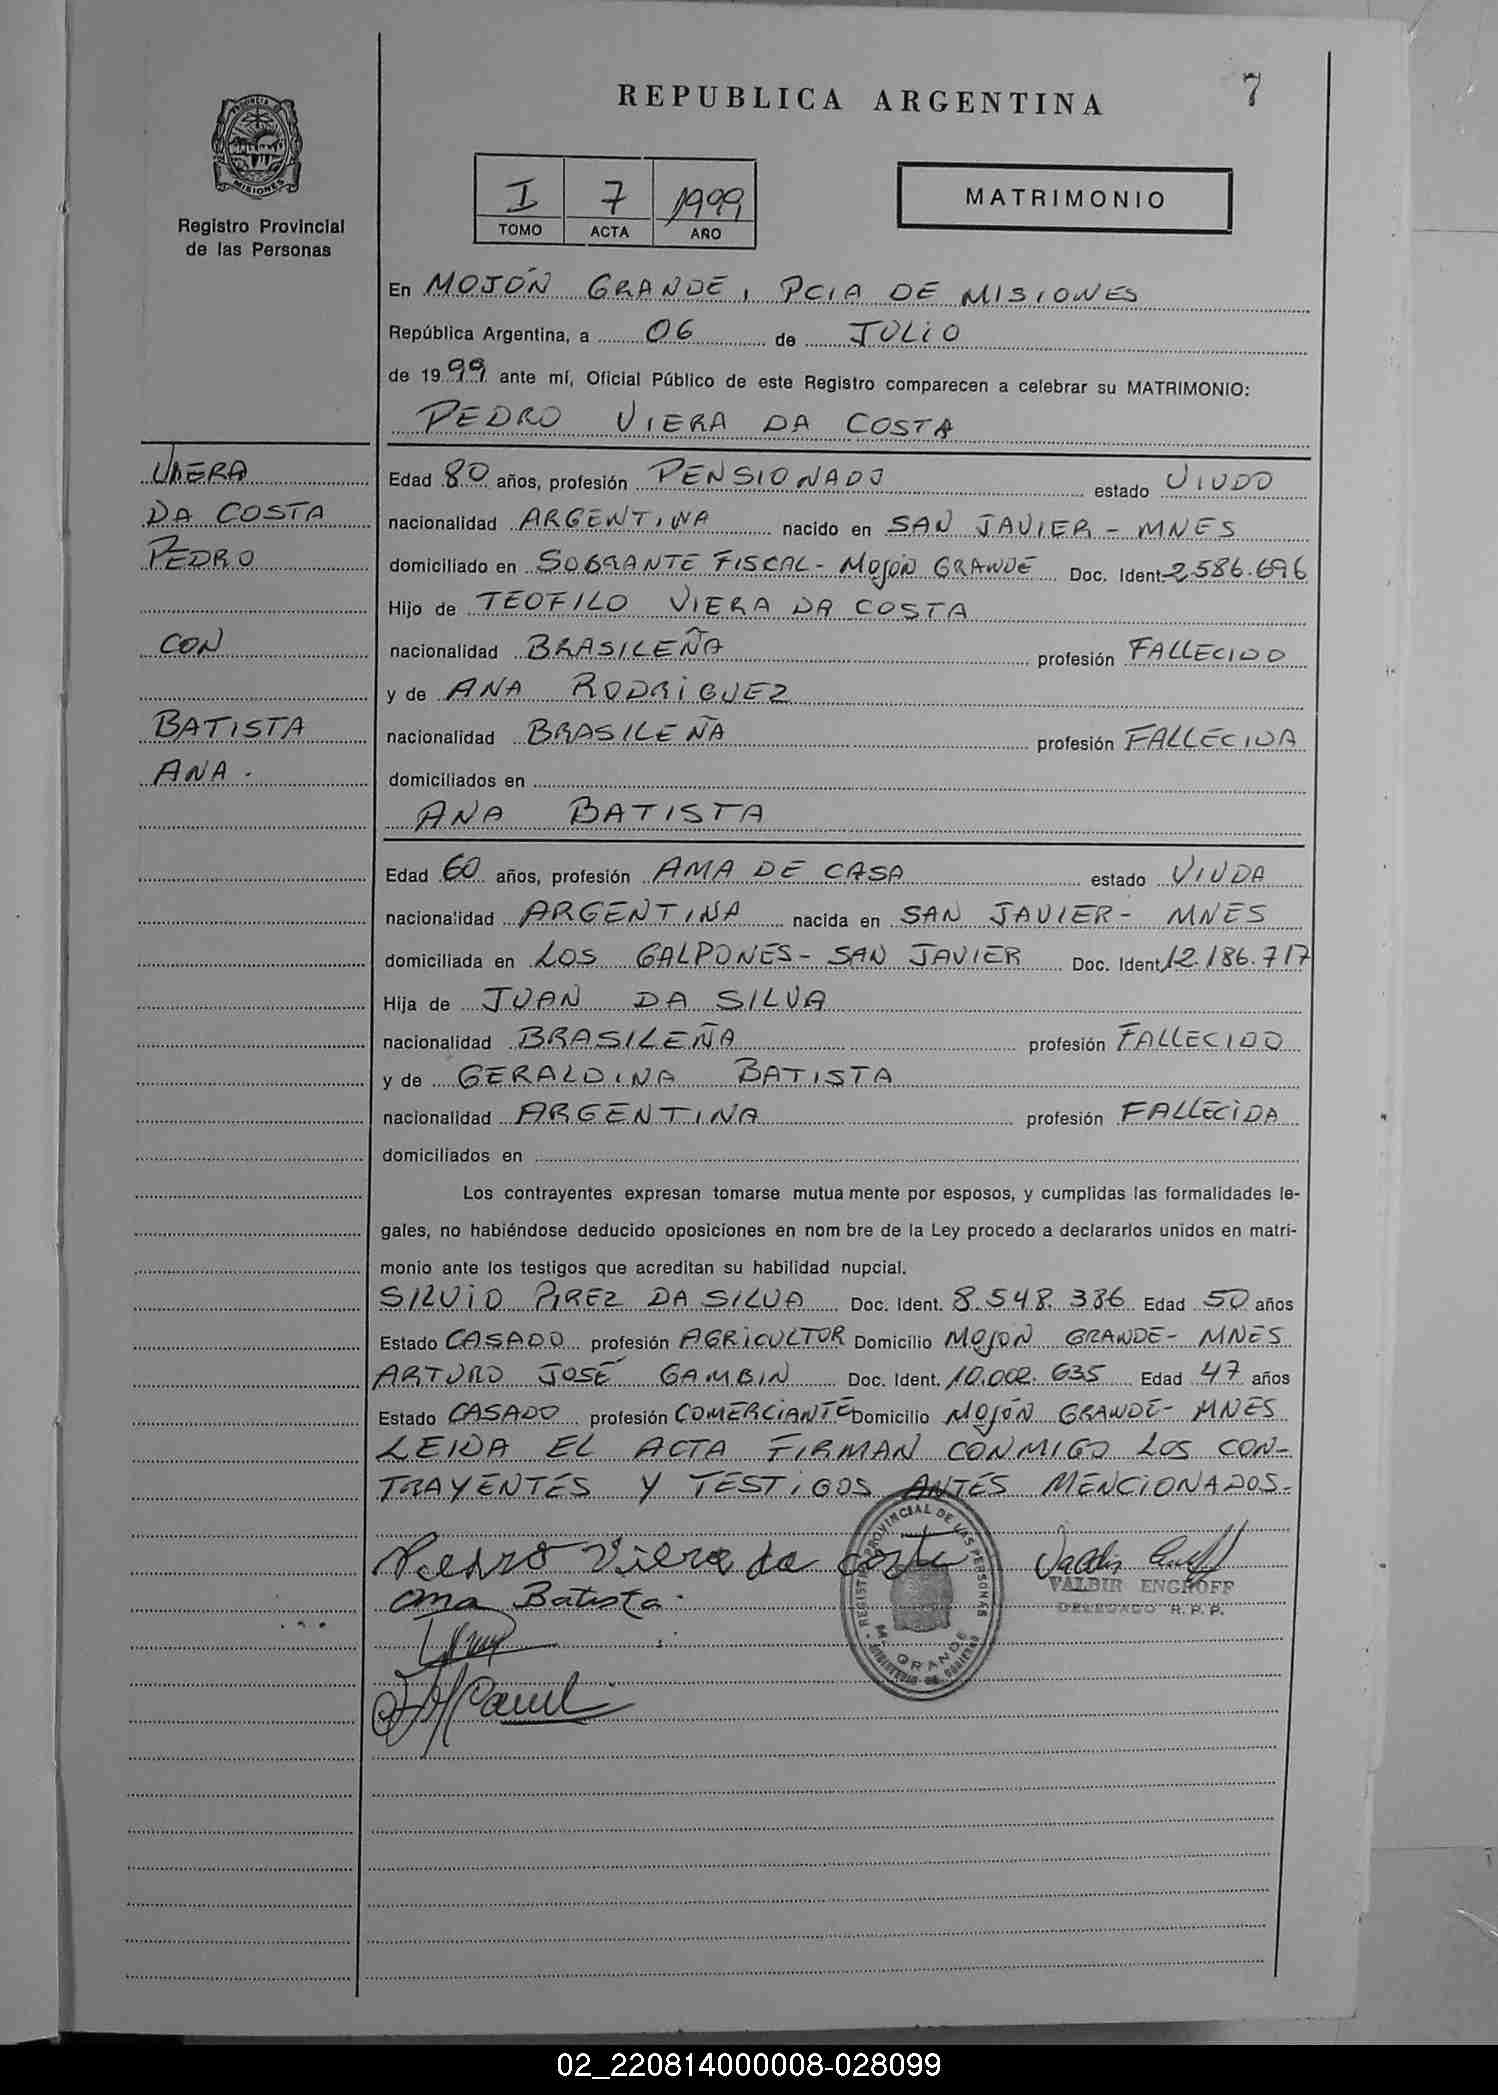 REPUBLICA ARGENTINA
7
PROVINCIA DE
MISIONES
Registro Provincial
de las Personas
I 7 1999
TOMO ACTA AÑO
MATRIMONIO
En MOJÓN GRANDE, PCIA DE MISIONES
República Argentina, a 06 de JULIO
de 1999 ante mí, Oficial Público de este Registro comparecen a celebrar su MATRIMONIO:
PEDRO VIERA DA COSTA
VIERA
DA COSTA
PEDRO
CON
BATISTA
ANA.
Edad 80 años, profesión PENSIONADO estado VIUDO
nacionalidad ARGENTINA nacido en SAN JAVIER - MNES
domiciliado en SOBRANTE FISCAL - MOJÓN GRANDE Doc. Ident. 2.586.696
Hijo de TEOFILO VIERA DA COSTA
nacionalidad BRASILEÑA profesión FALLECIDO
y de ANA RODRIGUEZ
nacionalidad BRASILEÑA profesión FALLECIDA
domiciliados en
ANA BATISTA
Edad 60 años, profesión AMA DE CASA estado VIUDA
nacionalidad ARGENTINA nacida en SAN JAVIER - MNES
domiciliada en LOS GALPONES - SAN JAVIER Doc. Ident. 12.186.717
Hija de JUAN DA SILVA
nacionalidad BRASILEÑA profesión FALLECIDO
y de GERALDINA BATISTA
nacionalidad ARGENTINA profesión FALLECIDA
domiciliados en
Los contrayentes expresan tomarse mutua mente por esposos, y cumplidas las formalidades le-
gales, no habiéndose deducido oposiciones en nom bre de la Ley procedo a declararlos unidos en matri-
monio ante los testigos que acreditan su habilidad nupcial.
SILVIO PIREZ DA SILVA Doc. Ident. 8.548.386 Edad 50 años
Estado CASADO profesión AGRICULTOR Domicilio MOJÓN GRANDE - MNES
ARTURO JOSÉ GAMBIN Doc. Ident. 10.002.635 Edad 47 años
Estado CASADO profesión COMERCIANTE Domicilio MOJÓN GRANDE - MNES
LEIDA EL ACTA FIRMAN CONMIGO LOS CON-
TRAYENTES Y TESTIGOS ANTES MENCIONADOS.-
Pedro Viera da Costa
Ana Batista
REGISTRO PROVINCIAL DE LAS PERSONAS
M. GRANDE
MINISTERIO DE GOBIERNO
VALDIR ENGROFF
DELEGADO R.P.P.
02_220814000008-028099